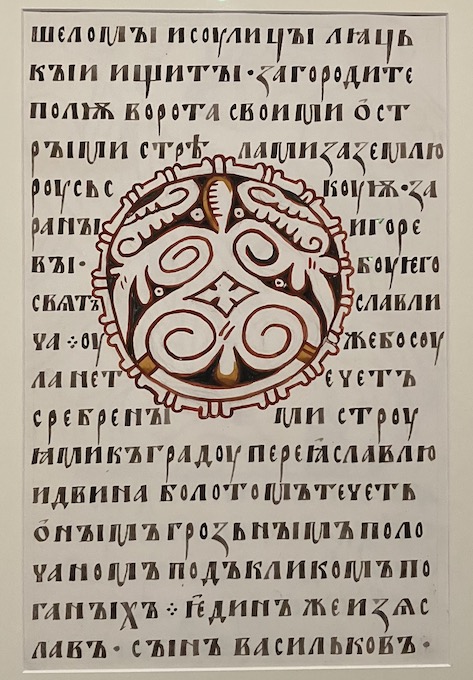 шеломꙑ и соулицꙑ лѧць
кꙑи ищитꙑ · загородите
полѭ ворота своими ост
рꙑми стрѣ лами за землю
роусьс коуѭ · за
ранꙑ игоре
вꙑ · боуѥго
свѧтъ славли
ча ⁘ оу же бо соу
ла нет ечетъ
сребренꙑ ми строу
ꙗмикъ градоу переꙗславлю
идвина болотомъ течеть
онꙑмъ грозьнꙑмъ поло
чаномъ подъкликомъ по
ганꙑхъ ⁘ ѥдинъ же изѧс
лавъ · сꙑнъ васильковъ ·